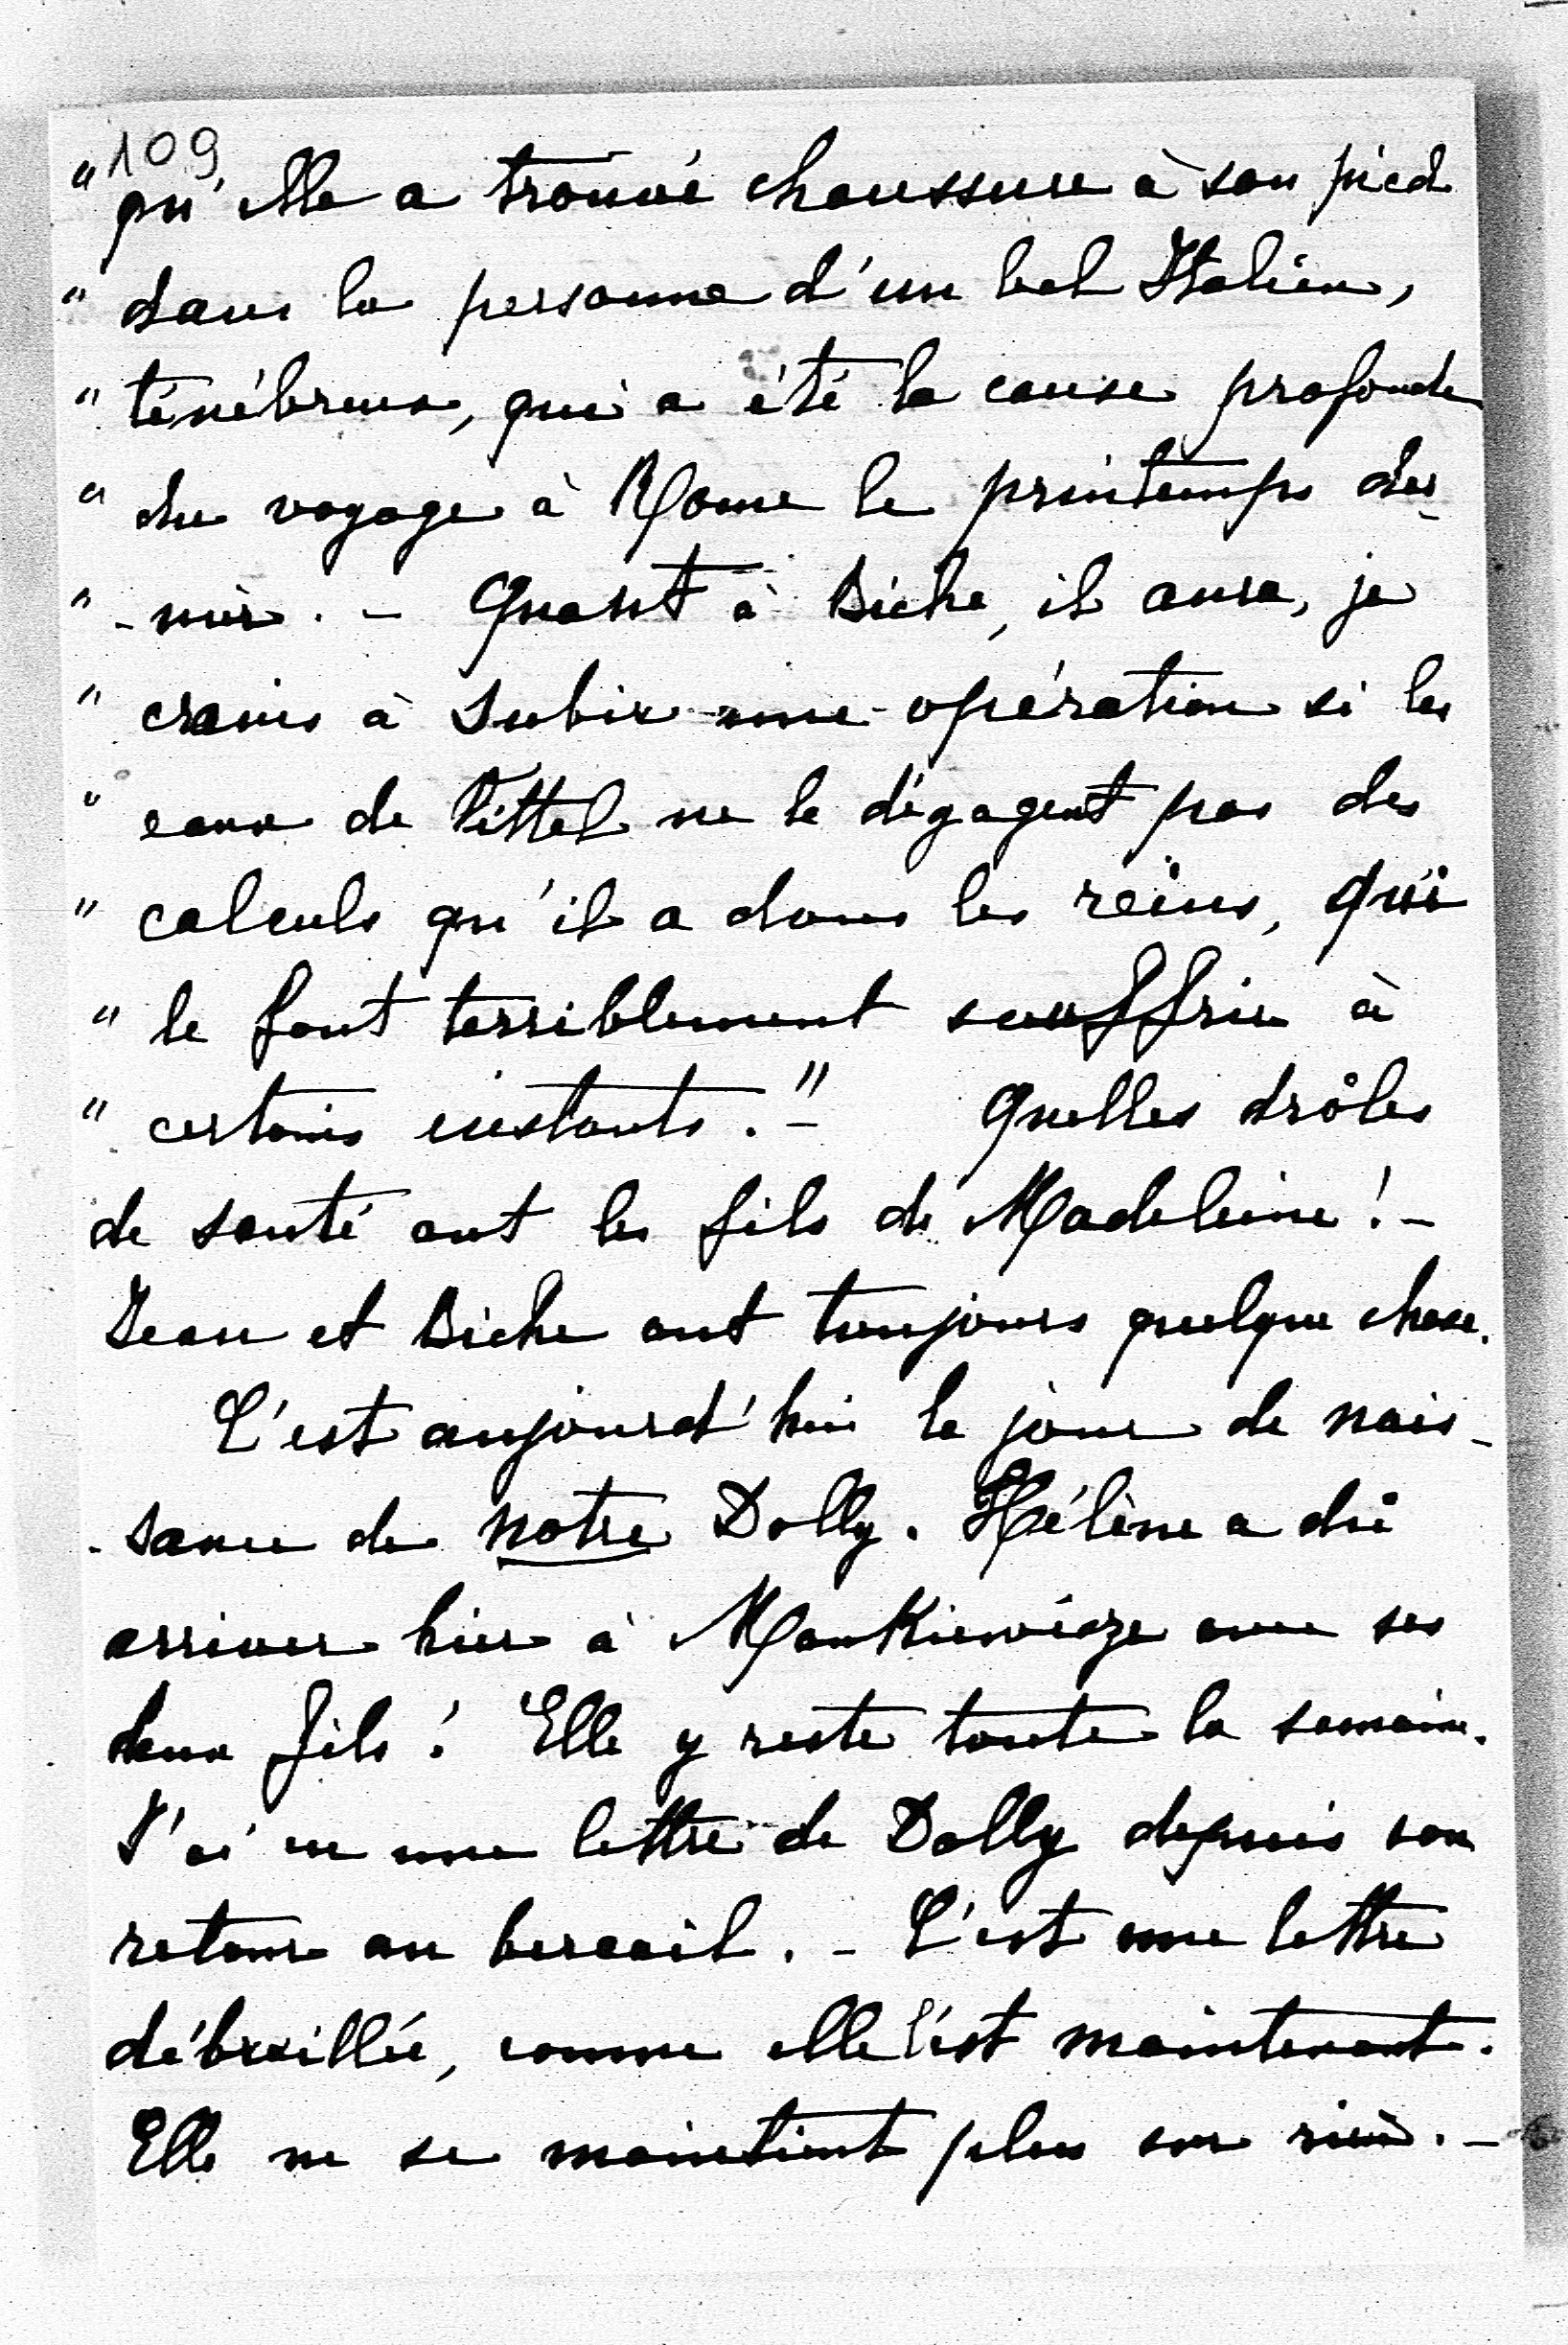 109
" qu'elle a trouvé chaussure à son pied
" dans la personne d'un bel Italien,
" ténébreux, qui a été la cause profonde
" du voyage à Rome le printemps der-
" -nier. - Quant à Biche, il aura, je
" crains à subir une opération si les
" eaux de Vittel ne le dégagent pas des
" calculs qu'il a dans les reins, qui
" le font terriblement souffrir à
" certains instants." - Quelles drôles
de santé ont les fils de Madeleine ! -
Jean et Biche ont toujours quelque chose.
C'est aujourd'hui le jour de nais-
-sance de notre Dolly. Hélène a dû
arriver hier à Mankiewicze avec ses
deux fils ! Elle y reste toute la semaine.
J'ai eu une lettre de Dolly depuis son
retour au bercail. - C'est une lettre
débraillée, comme elle l'est maintenant.
Elle ne se maintient plus sur rien. -